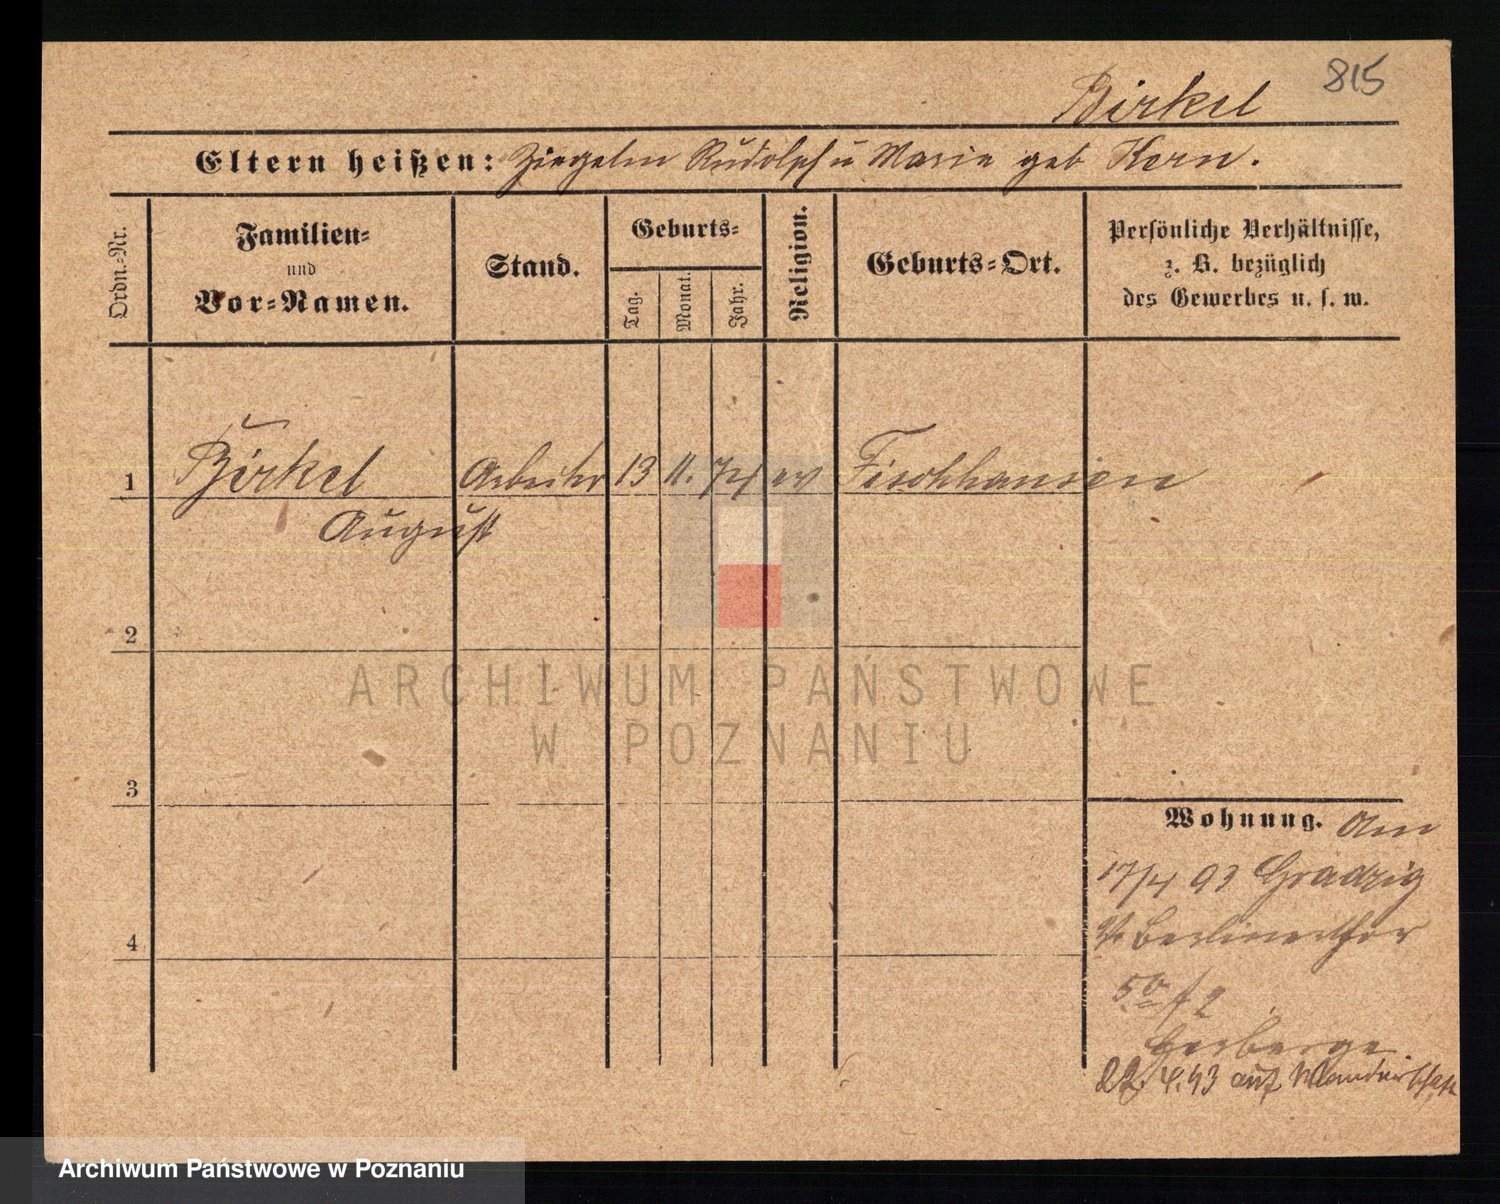 815
Birkel
Eltern heißen: Ziegelm Rudolph u Marie geb Kern.
Ordn.-Nr.
Familien-
und
Vor-Namen.
Stand.
Geburts-
Tag.
Monat.
Jahr.
Religion.
Geburts-Ort.
Persönliche Verhältnisse,
z. B. bezüglich
des Gewerbes u. s. w.
1 Birkel Arbeiter 13 11. 74 ev Fischhausen
August
2
3
4
Wohnung. Am
17/4 93 Gradzig
v Berlinerthor
5a f 2
Herberge
22. 4. 93 auf Wanderschaft
ARCHIWUM PAŃSTWOWE
W POZNANIU
Archiwum Państwowe w Poznaniu